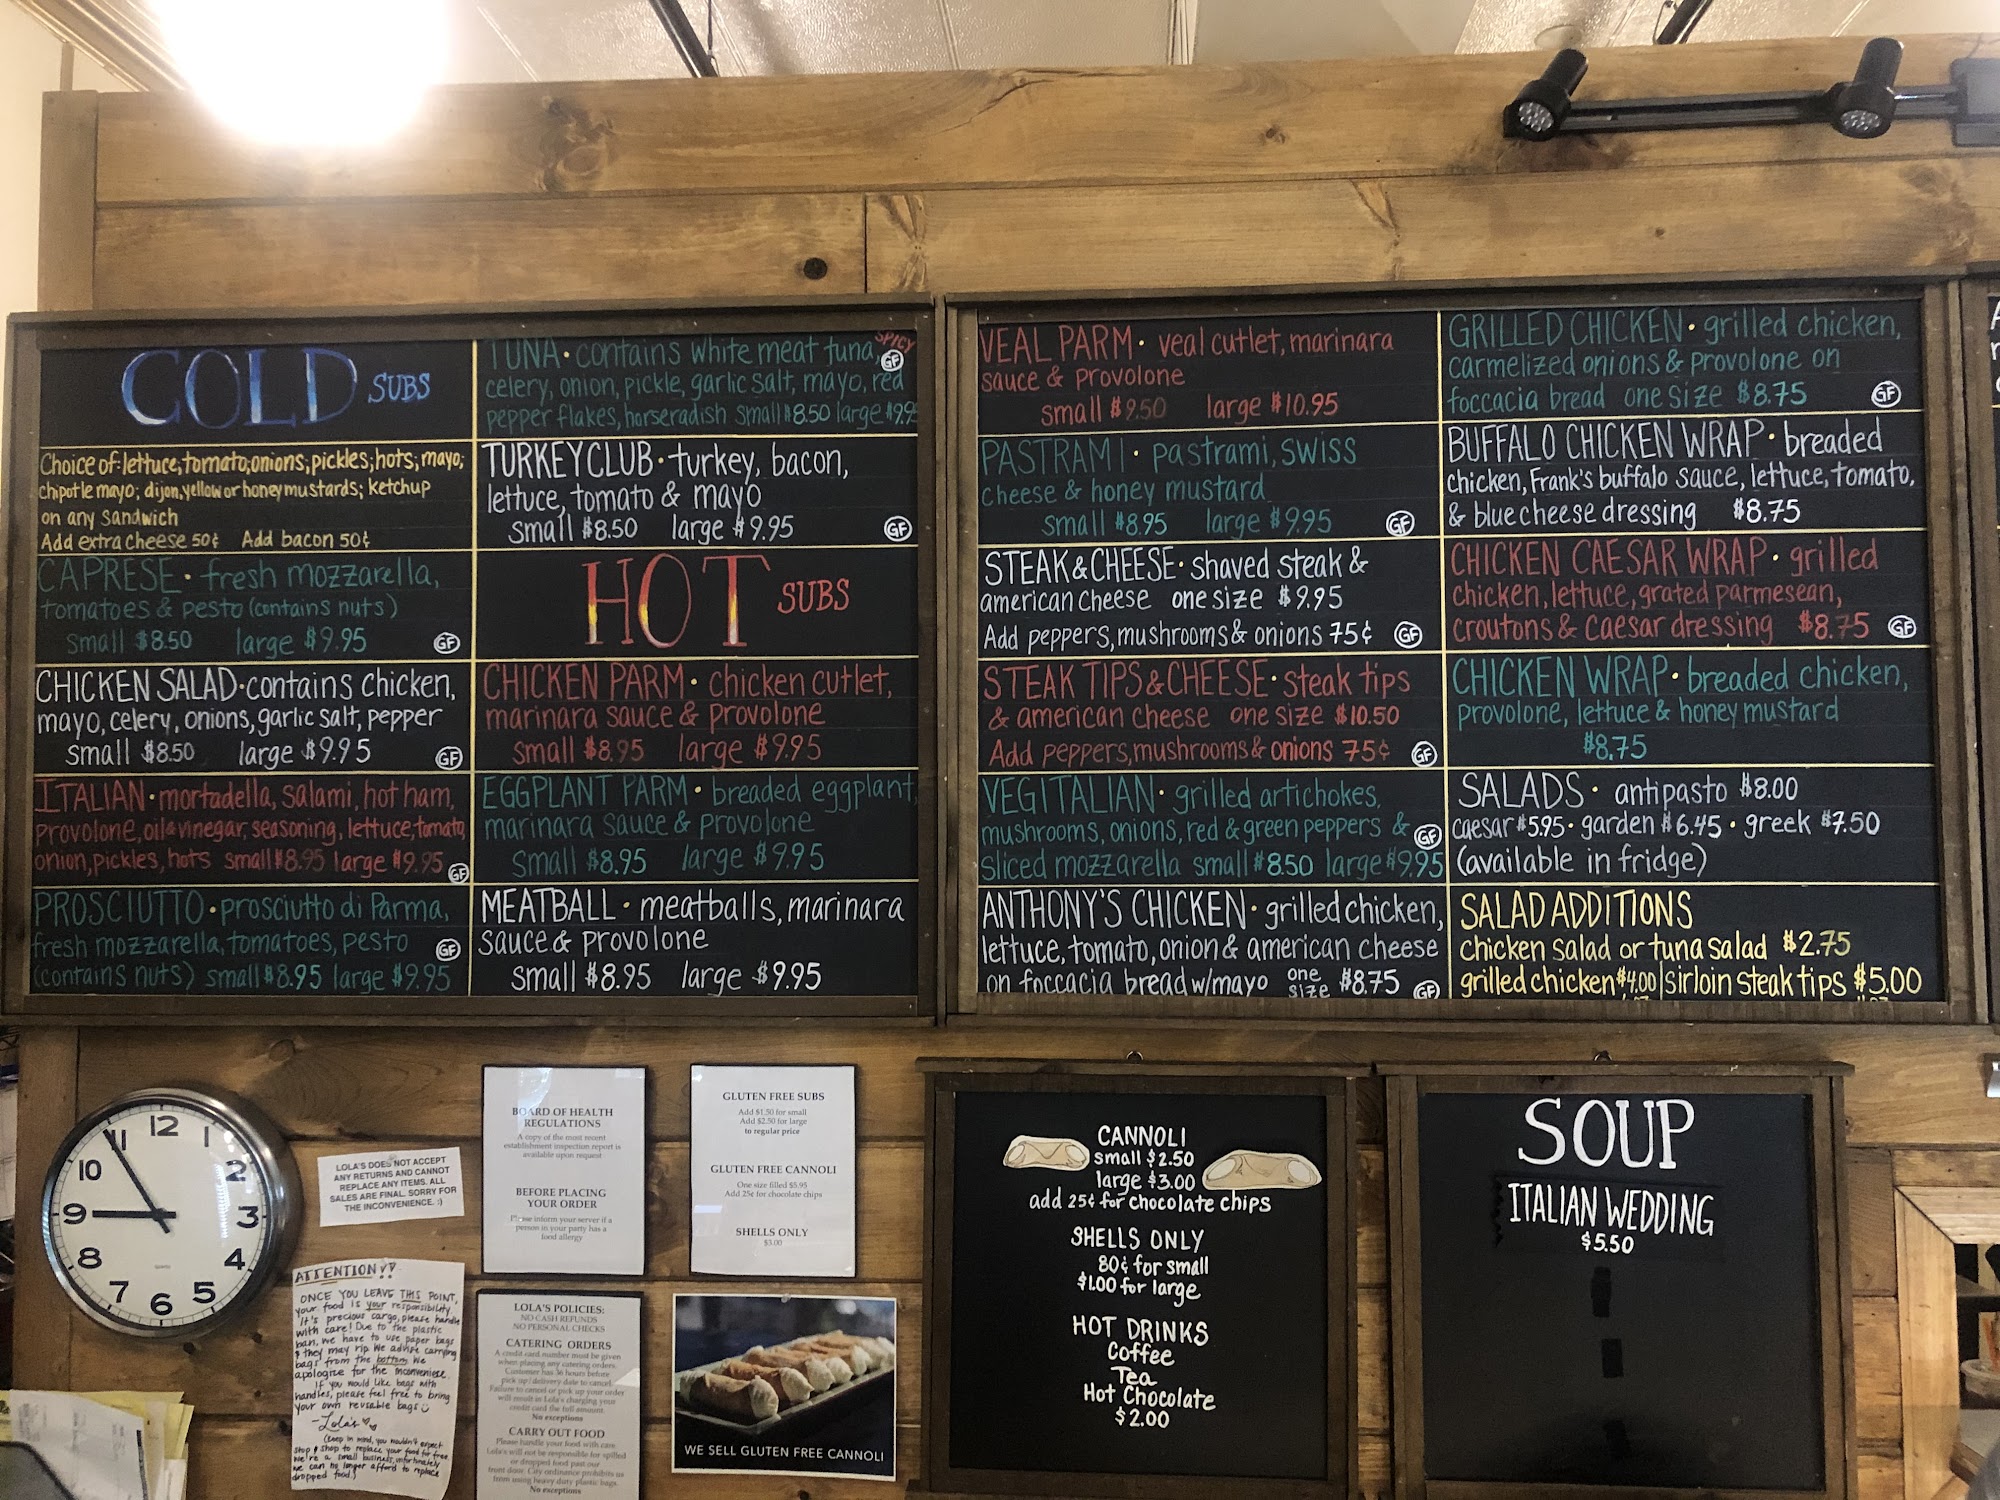 COLD SUBS
Choice of: lettuce; tomato; onions; pickles; hots; mayo;
chipotle mayo; dijon, yellow or honey mustards; ketchup
on any sandwich
Add extra cheese 50¢ Add bacon 50¢
CAPRESE • fresh mozzarella,
tomatoes & pesto (contains nuts)
small $8.50 large $9.95 GF
CHICKEN SALAD • contains chicken,
mayo, celery, onions, garlic salt, pepper
small $8.50 large $9.95 GF
ITALIAN • mortadella, salami, hot ham,
provolone, oil & vinegar, seasoning, lettuce, tomato,
onion, pickles, hots small $8.95 large $9.95 GF
PROSCIUTTO • prosciutto di Parma,
fresh mozzarella, tomatoes, pesto GF
(contains nuts) small $8.95 large $9.95
SPICY
TUNA • contains white meat tuna, GF
celery, onion, pickle, garlic salt, mayo, red
pepper flakes, horseradish small $8.50 large $9.95
TURKEY CLUB • turkey, bacon,
lettuce, tomato & mayo
small $8.50 large $9.95 GF
HOT SUBS
CHICKEN PARM • chicken cutlet,
marinara sauce & provolone
small $8.95 large $9.95
EGGPLANT PARM • breaded eggplant,
marinara sauce & provolone
small $8.95 large $9.95
MEATBALL • meatballs, marinara
sauce & provolone
small $8.95 large $9.95
VEAL PARM • veal cutlet, marinara
sauce & provolone
small $9.50 large $10.95
PASTRAMI • pastrami, swiss
cheese & honey mustard
small $8.95 large $9.95 GF
STEAK & CHEESE • shaved steak &
american cheese one size $9.95
Add peppers, mushrooms & onions 75¢ GF
STEAK TIPS & CHEESE • steak tips
& american cheese one size $10.50
Add peppers, mushrooms & onions 75¢ GF
VEGITALIAN • grilled artichokes,
mushrooms, onions, red & green peppers & GF
sliced mozzarella small $8.50 large $9.95
ANTHONY'S CHICKEN • grilled chicken,
lettuce, tomato, onion & american cheese
on foccacia bread w/mayo one size $8.75 GF
GRILLED CHICKEN • grilled chicken,
carmelized onions & provolone on
foccacia bread one size $8.75 GF
BUFFALO CHICKEN WRAP • breaded
chicken, Frank's buffalo sauce, lettuce, tomato,
& blue cheese dressing $8.75
CHICKEN CAESAR WRAP • grilled
chicken, lettuce, grated parmesean,
croutons & caesar dressing $8.75 GF
CHICKEN WRAP • breaded chicken,
provolone, lettuce & honey mustard
$8.75
SALADS • antipasto $8.00
caesar $5.95 • garden $6.45 • greek $7.50
(available in fridge)
SALAD ADDITIONS
chicken salad or tuna salad $2.75
grilled chicken $4.00 | sirloin steak tips $5.00
12
1
2
3
4
5
6
7
8
9
10
11
LOLA'S DOES NOT ACCEPT
ANY RETURNS AND CANNOT
REPLACE ANY ITEMS. ALL
SALES ARE FINAL. SORRY FOR
THE INCONVENIENCE. :)
ATTENTION!!
ONCE YOU LEAVE THIS POINT,
your food is your responsibility.
It's precious cargo, please handle
with care! Due to the plastic
ban, we have to use paper bags
& they may rip. We advise carrying
bags from the bottom. We
apologize for the inconvenience.
If you would like bags with
handles, please feel free to bring
your own reusable bags
-Lola's
(Keep in mind, you wouldn't expect
stop & shop to replace your food for free.
We're a small business, unfortunately
we can no longer afford to replace
dropped food)
BOARD OF HEALTH
REGULATIONS
A copy of the most recent
establishment inspection report is
available upon request
BEFORE PLACING
YOUR ORDER
Please inform your server if a
person in your party has a
food allergy
LOLA'S POLICIES:
NO CASH REFUNDS
NO PERSONAL CHECKS
CATERING ORDERS
A credit card number must be given
when placing any catering orders.
Customer has 36 hours before
pick up/delivery date to cancel.
Failure to cancel or pick up your order
will result in Lola's charging your
credit card the full amount.
No exceptions
CARRY OUT FOOD
Please handle your food with care.
Lola's will not be responsible for spilled
or dropped food past our
front door. City ordinance prohibits us
from using heavy duty plastic bags.
No exceptions
GLUTEN FREE SUBS
Add $1.50 for small
Add $2.50 for large
to regular price
GLUTEN FREE CANNOLI
One size filled $5.95
Add 25¢ for chocolate chips
SHELLS ONLY
$3.00
WE SELL GLUTEN FREE CANNOLI
CANNOLI
small $2.50
large $3.00
add 25¢ for chocolate chips
SHELLS ONLY
80¢ for small
$1.00 for large
HOT DRINKS
Coffee
Tea
Hot Chocolate
$2.00
SOUP
ITALIAN WEDDING
$5.50